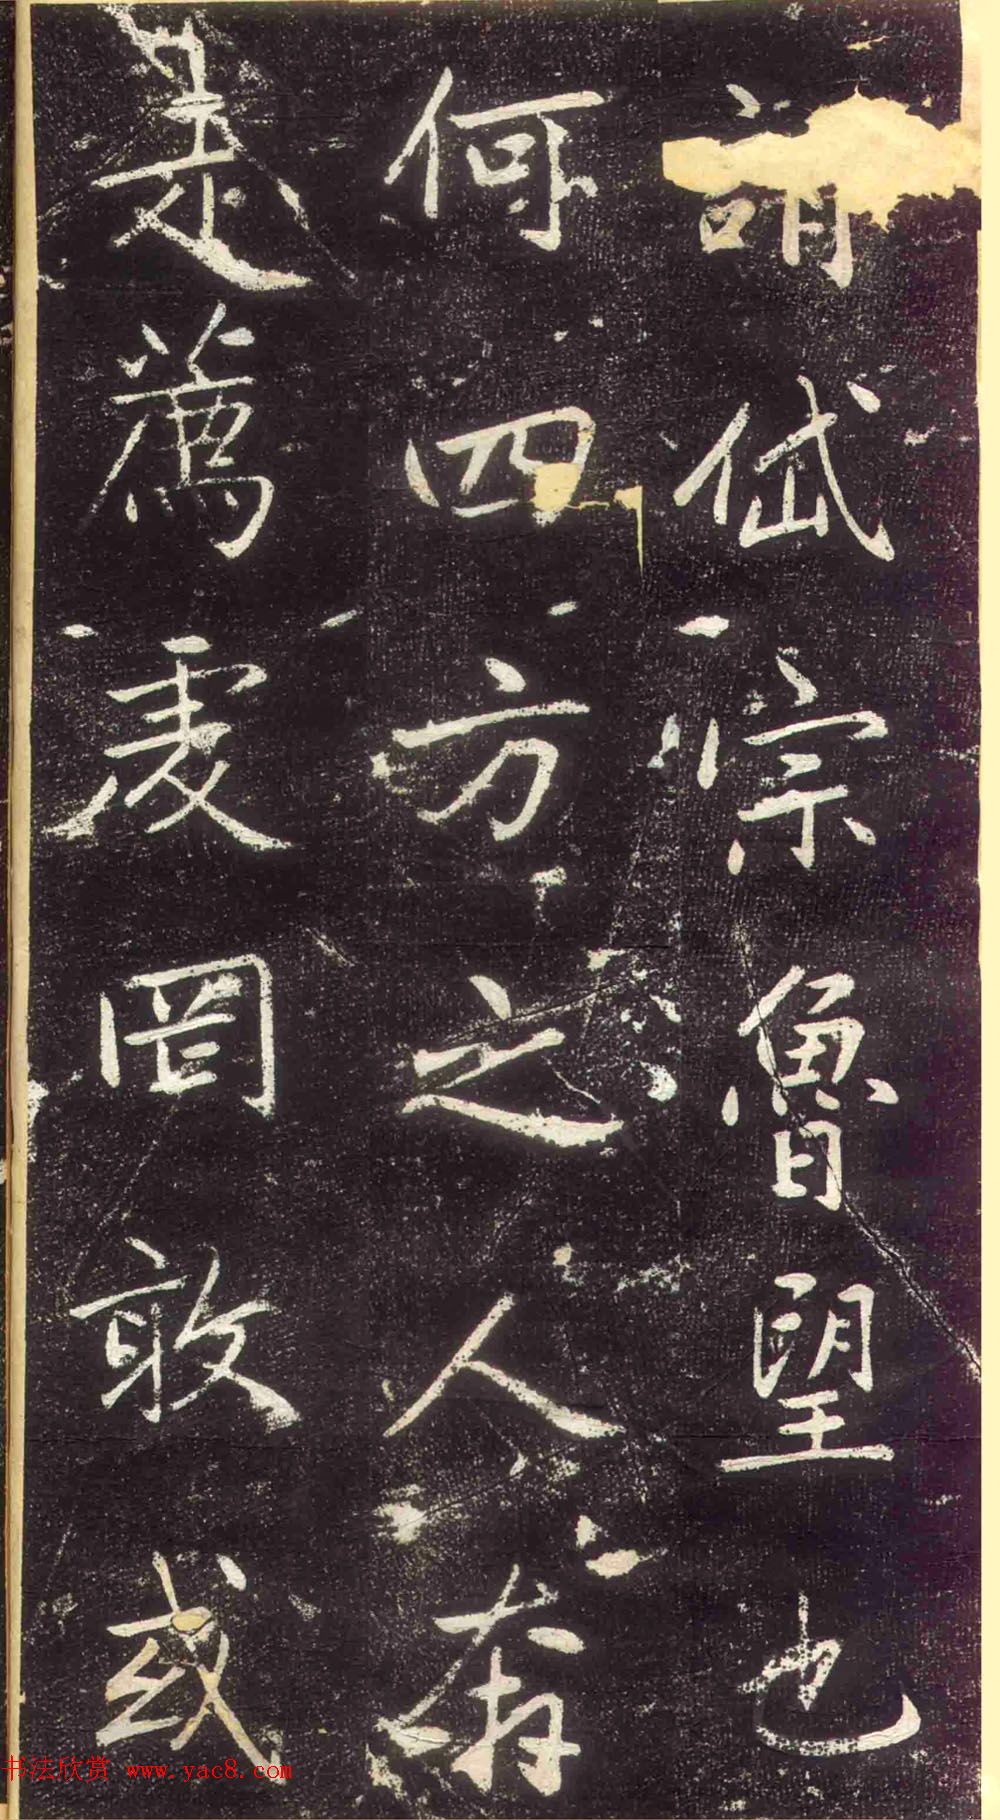 謂岱宗魯望也
何四方之人奔
走薦虔罔敢或
书法欣赏 www.yac8.com